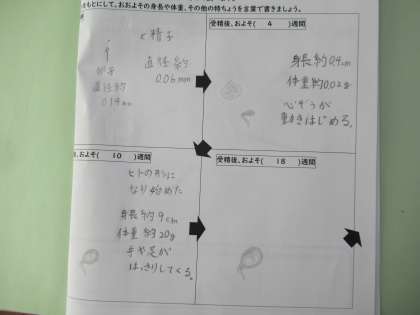 をもとにして、おおよその身長や体重、その他の特ちょうを言葉で書きましょう。
精子
直径約
0.06mm
卵子
直径約
0.14mm
受精後、およそ( 4 )週間
身長約0.4cm
体重約0.02g
心ぞうが
動きはじめる。
、およそ( 10 )週間
ヒトの形に
なり始めた
身長約9cm
体重約20g
手や足が
はっきりしてくる。
受精後、およそ( 18 )週間